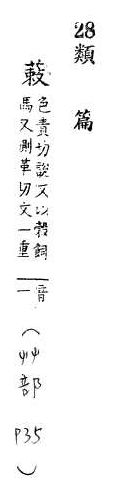 28 類篇
䔩
色責切說文以穀飼
馬又測革切文一重
音
一
（艸部 P35）